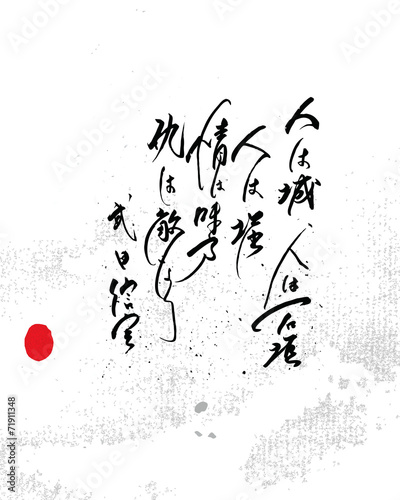 人は城 人は石垣
人は堀
情は味方
仇は敵なり
武田信玄
Adobe Stock | #71911348